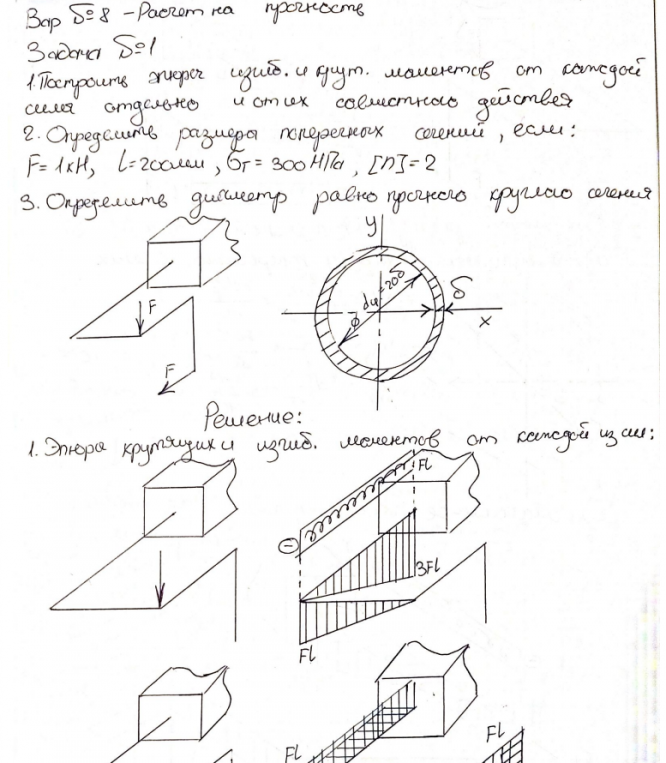 Вар №8 - Расчет на прочность
Задача №1
1. Построить эпюры изгиб. и крут. моментов от каждой
силы отдельно и от их совместного действия
2. Определить размеры поперечных сечений, если:
F = 1кН, L = 200мм, σт = 300 МПа, [n] = 2
3. Определить диаметр равнопрочного круглого сечения
y
F
F
dн = 20δ
ϕ
δ
x
Решение:
1. Эпюра крутящих и изгиб. моментов от каждой из сил:
Fl
3Fl
Fl
Fl
Fl